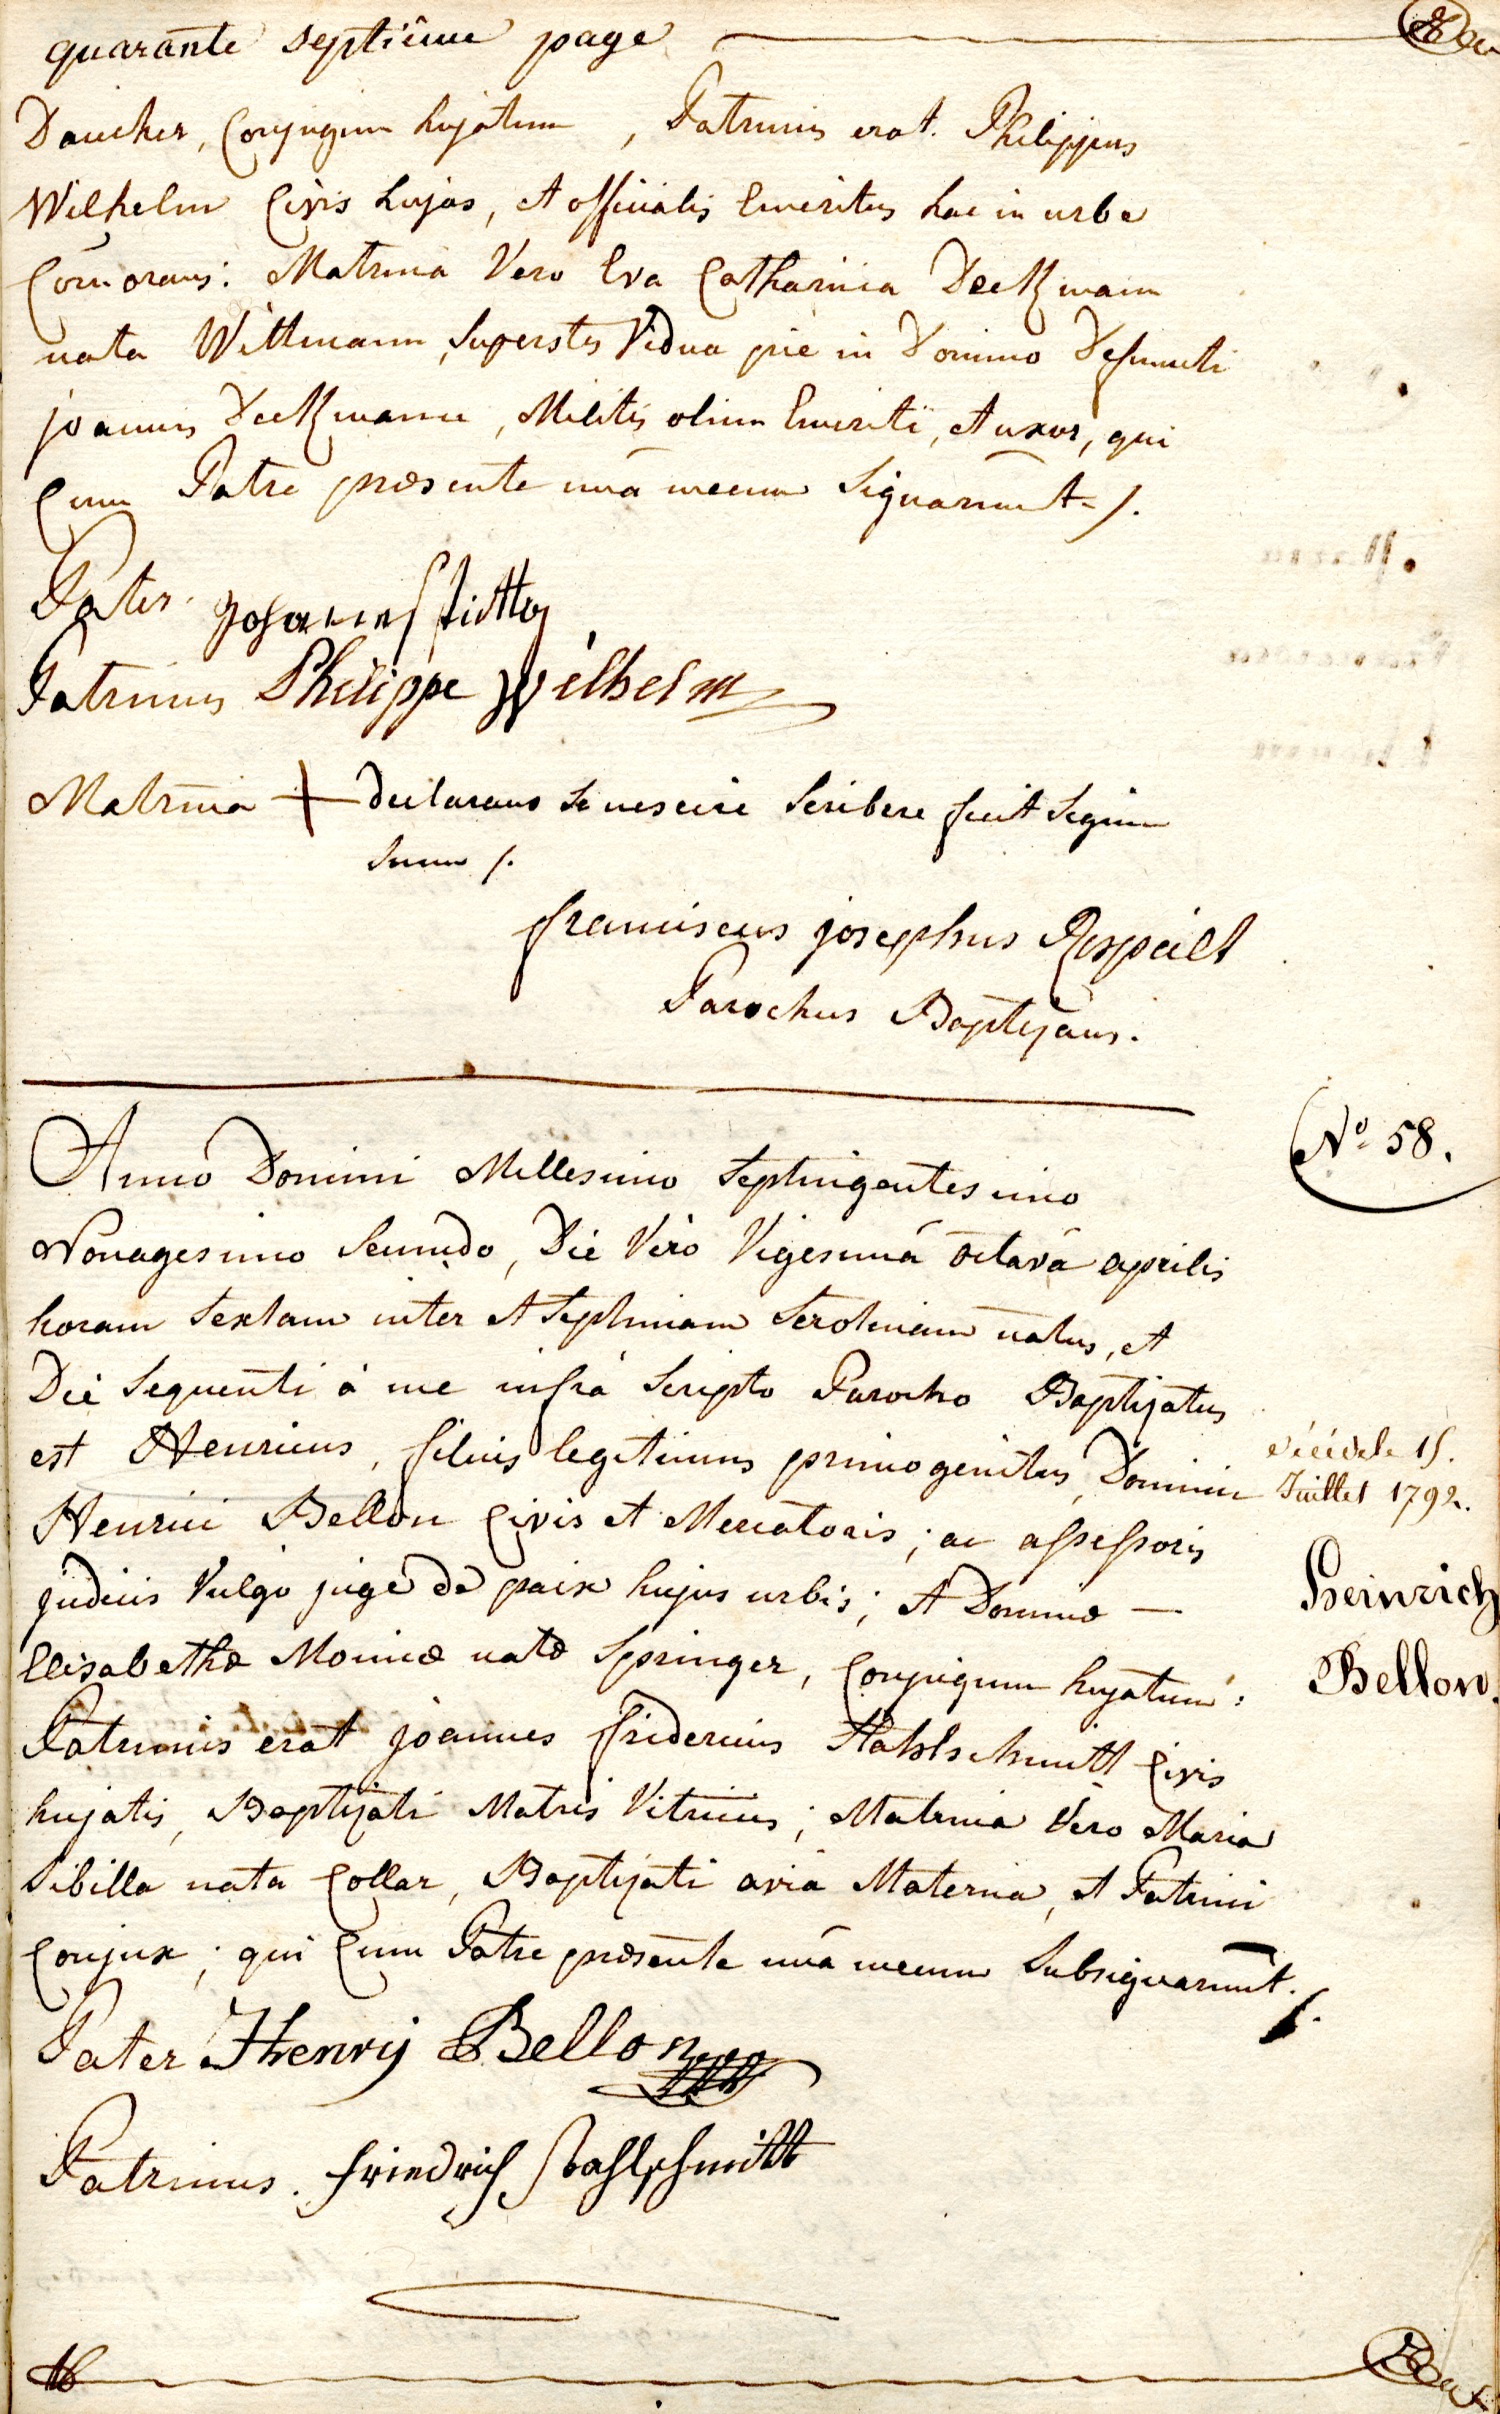 quarante septiême page
Daucher, Conjugum hujatum, Patrinus erat. Philippus
Wilhelm Civis hujas, et officialis Emeritus hac in urbe
Comorans: Matrina Vero Eva Catharina Deckmann
nata Wittmann, Superstes Vidua pie in Domino Defuncti
joannis Deckmann, Militis olim Emeriti, et uxor, qui
Cum Patre præsente unâ mecum Signarunt /.
Pater. Johannes
Patrinus Philippe Wilhelm
Matrina + declarans se nescire Scribere fecit Signum
Suum /.
franciscus josephus Respeilt
Parochus Baptizans.
Nº 58.
Anno Domini Millesimo Septingentesimo
Nonagesimo Secundo, Die Vero Vigesimâ octavâ aprilis
horam Sextam inter et Septimam Serotinam natus, et
Die Sequenti à me infrà Scripto Parocho Baptizatus
est Henricus, filius legitimus primogenitus, Domini
décédé le 15.
Juillet 1792.
Henrici Bellon Civis et Mercatoris; ac assessoris
judicis Vulgo juge de paix hujus urbis; et Dominæ —
Heinrich
Bellon.
Elisabethæ Monicæ natæ Springer, Conjugum hujatum:
Patrinus erat joannes fridericus Stahlschmitt Civis
hujatis, Baptizati Matris Vitricus; Matrina Vero Maria
Sibilla nata Collar, Baptizati avia Materna, et Patrini
Conjux; qui Cum Patre præsente unâ mecum Subsignarunt. /.
Pater Henry Bellon
Patrinus. friedrich Stahlschmitt